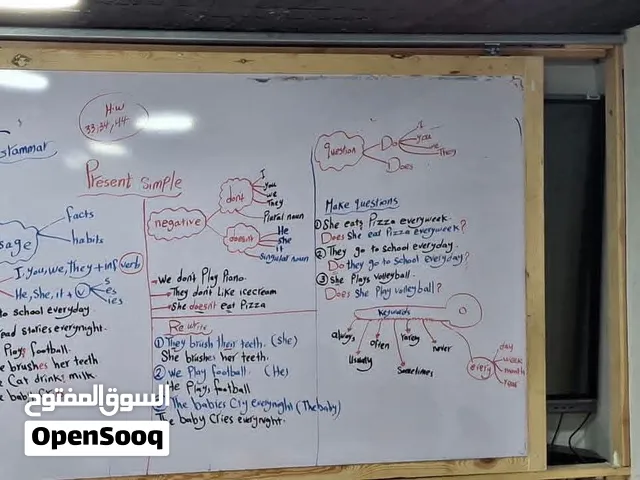 H.W
33,34,44
Grammar
Present simple
facts
habits
sage
I, you, we, They + inf verb
He, She, it + v
s
es
ies
to school everyday
read stories everynight.
Plays football.
brushes her teeth
Cat drinks milk
negative
dont
I
you
we
They
Plural noun
doesn't
He
She
it
Singular noun
We don't Play Piano.
They don't Like icecream
She doesn't eat Pizza
Rewrite
① They brush their teeth. (She)
She brushes her teeth.
② We Play football. (He)
He Plays football
The babies Cry Everynight (The baby)
The baby Cries everynight.
question
Do
I
you
we
They
Does
Make questions
① She eats Pizza everyweek.
Does She eat Pizza everyweek?
② They go to school everyday.
Do they go to school everyday?
③ She Plays volleyball.
Does She Play volleyball?
Keywords
always
usually
often
rarely
Sometimes
never
every
day
week
month
year
السوق المفتوح
OpenSooq